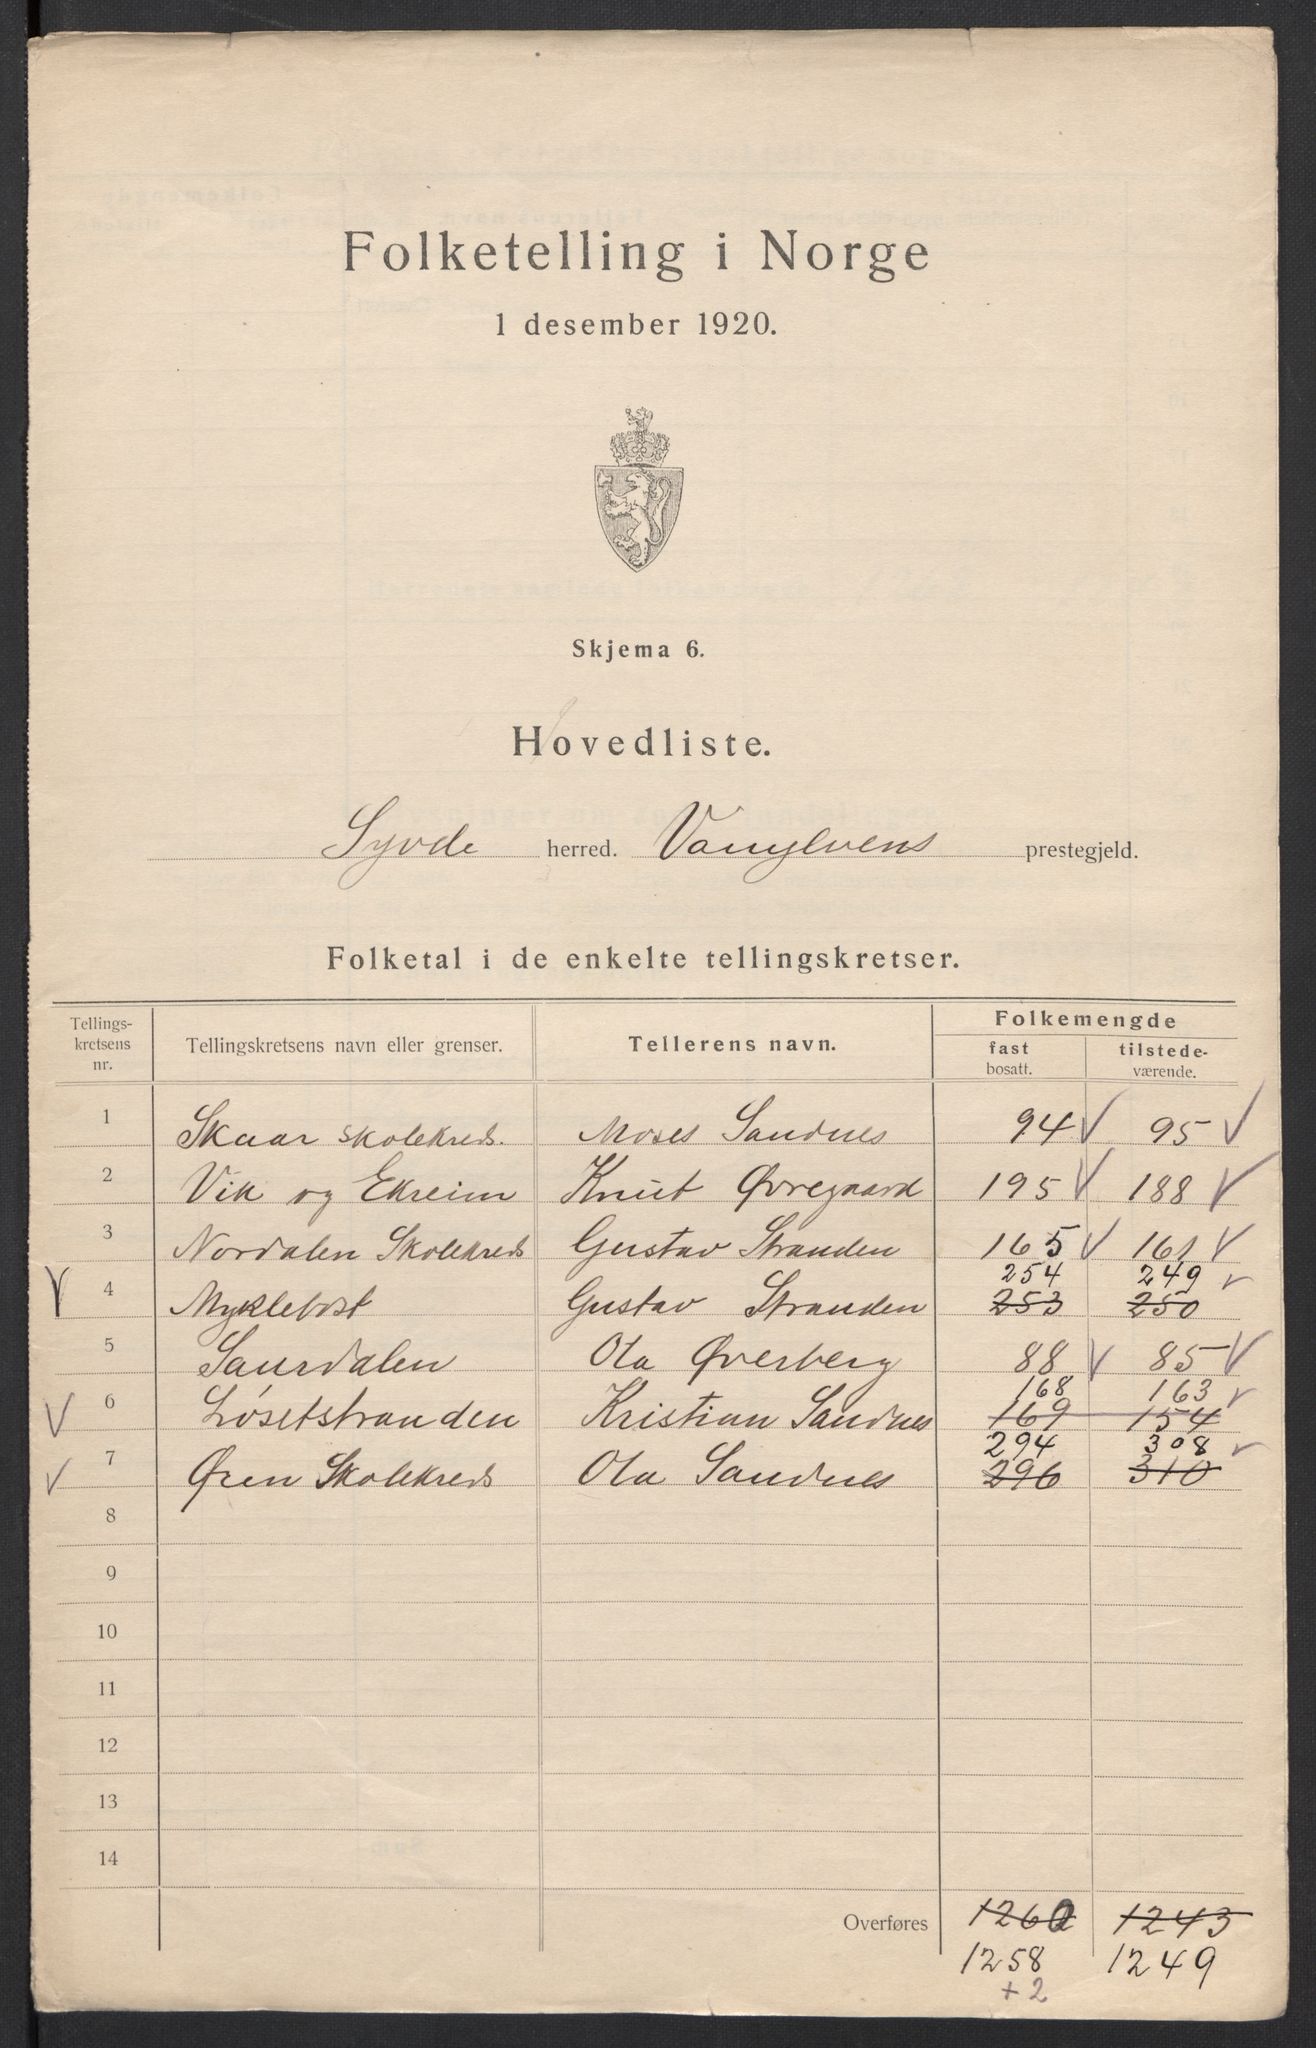 Folketelling i Norge
1 desember 1920.
Skjema 6.
Hovedliste.
Syvde herred. Vanylvens prestegjeld.
Folketal i de enkelte tellingskretser.
Tellings-
kretsens
nr.
Tellingskretsens navn eller grenser.
Tellerens navn.
Folkemengde
fast
bosatt.
tilstede-
værende.
1 Skaar skolekreds. Moses Sandnes 94 95
2 Vik og Ekreim Knut Øvregaard 195 188
3 Nordalen Skolekreds Gustav Stranden 165 161
254 249
4 Myklebost Gustav Stranden 253 250
5 Saurdalen Ola Øverberg 88 85
168 163
6 Løsetstranden Kristian Sandnes 169 154
294 308
7 Øren Skolekreds Ola Sandnes 296 310
8
9
10
11
12
13
14
Overføres 1260 1243
1258 1249
+2